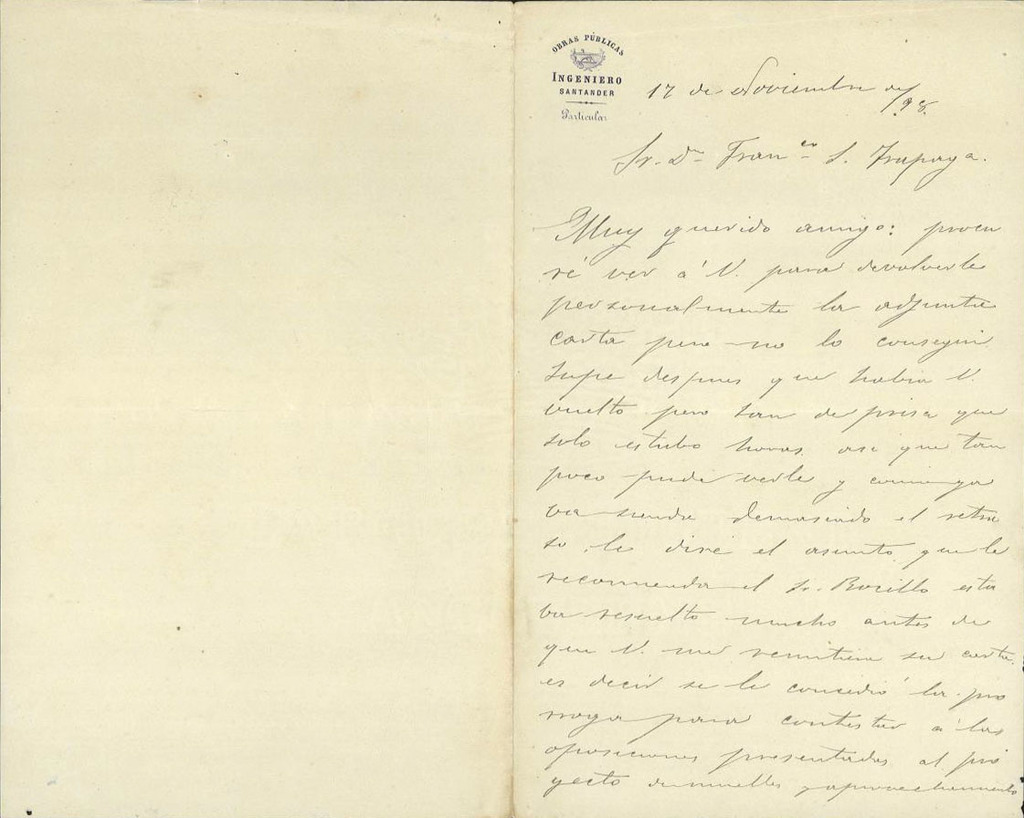 OBRAS PÚBLICAS
INGENIERO
SANTANDER
Particular
17 de Noviembre de /98.
Sr. Dn Franco S. Trapaga.
Muy querido amigo: procu
ré ver á V. para devolverle
personalmente la adjunta
carta pero no lo consegui.
Supe despues que habia V.
vuelto pero tan de prisa que
solo estubo horas asi que tam
poco pude verle y como ya
va siendo demasiado el retra
so, le diré el asunto que le
recomienda el Sr. esta
ba resuelto mucho antes de
que V. me remitiera su carta,
es decir se le concedió la pro
rroga para contestar á las
oposiciones presentadas al pro
yecto de muelles y aprovechamiento